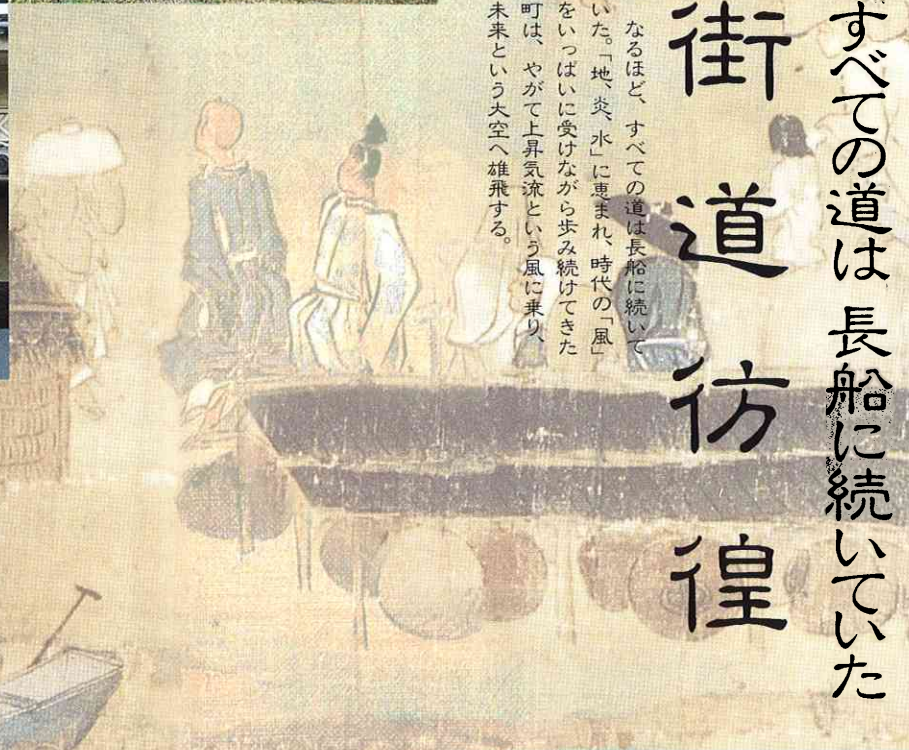 すべての道は 長船に続いていた
街道彷徨
なるほど、すべての道は長船に続いて
いた。「地、炎、水」に恵まれ、時代の「風」
をいっぱいに受けながら歩み続けてきた
町は、やがて上昇気流という風に乗り、
未来という大空へ雄飛する。